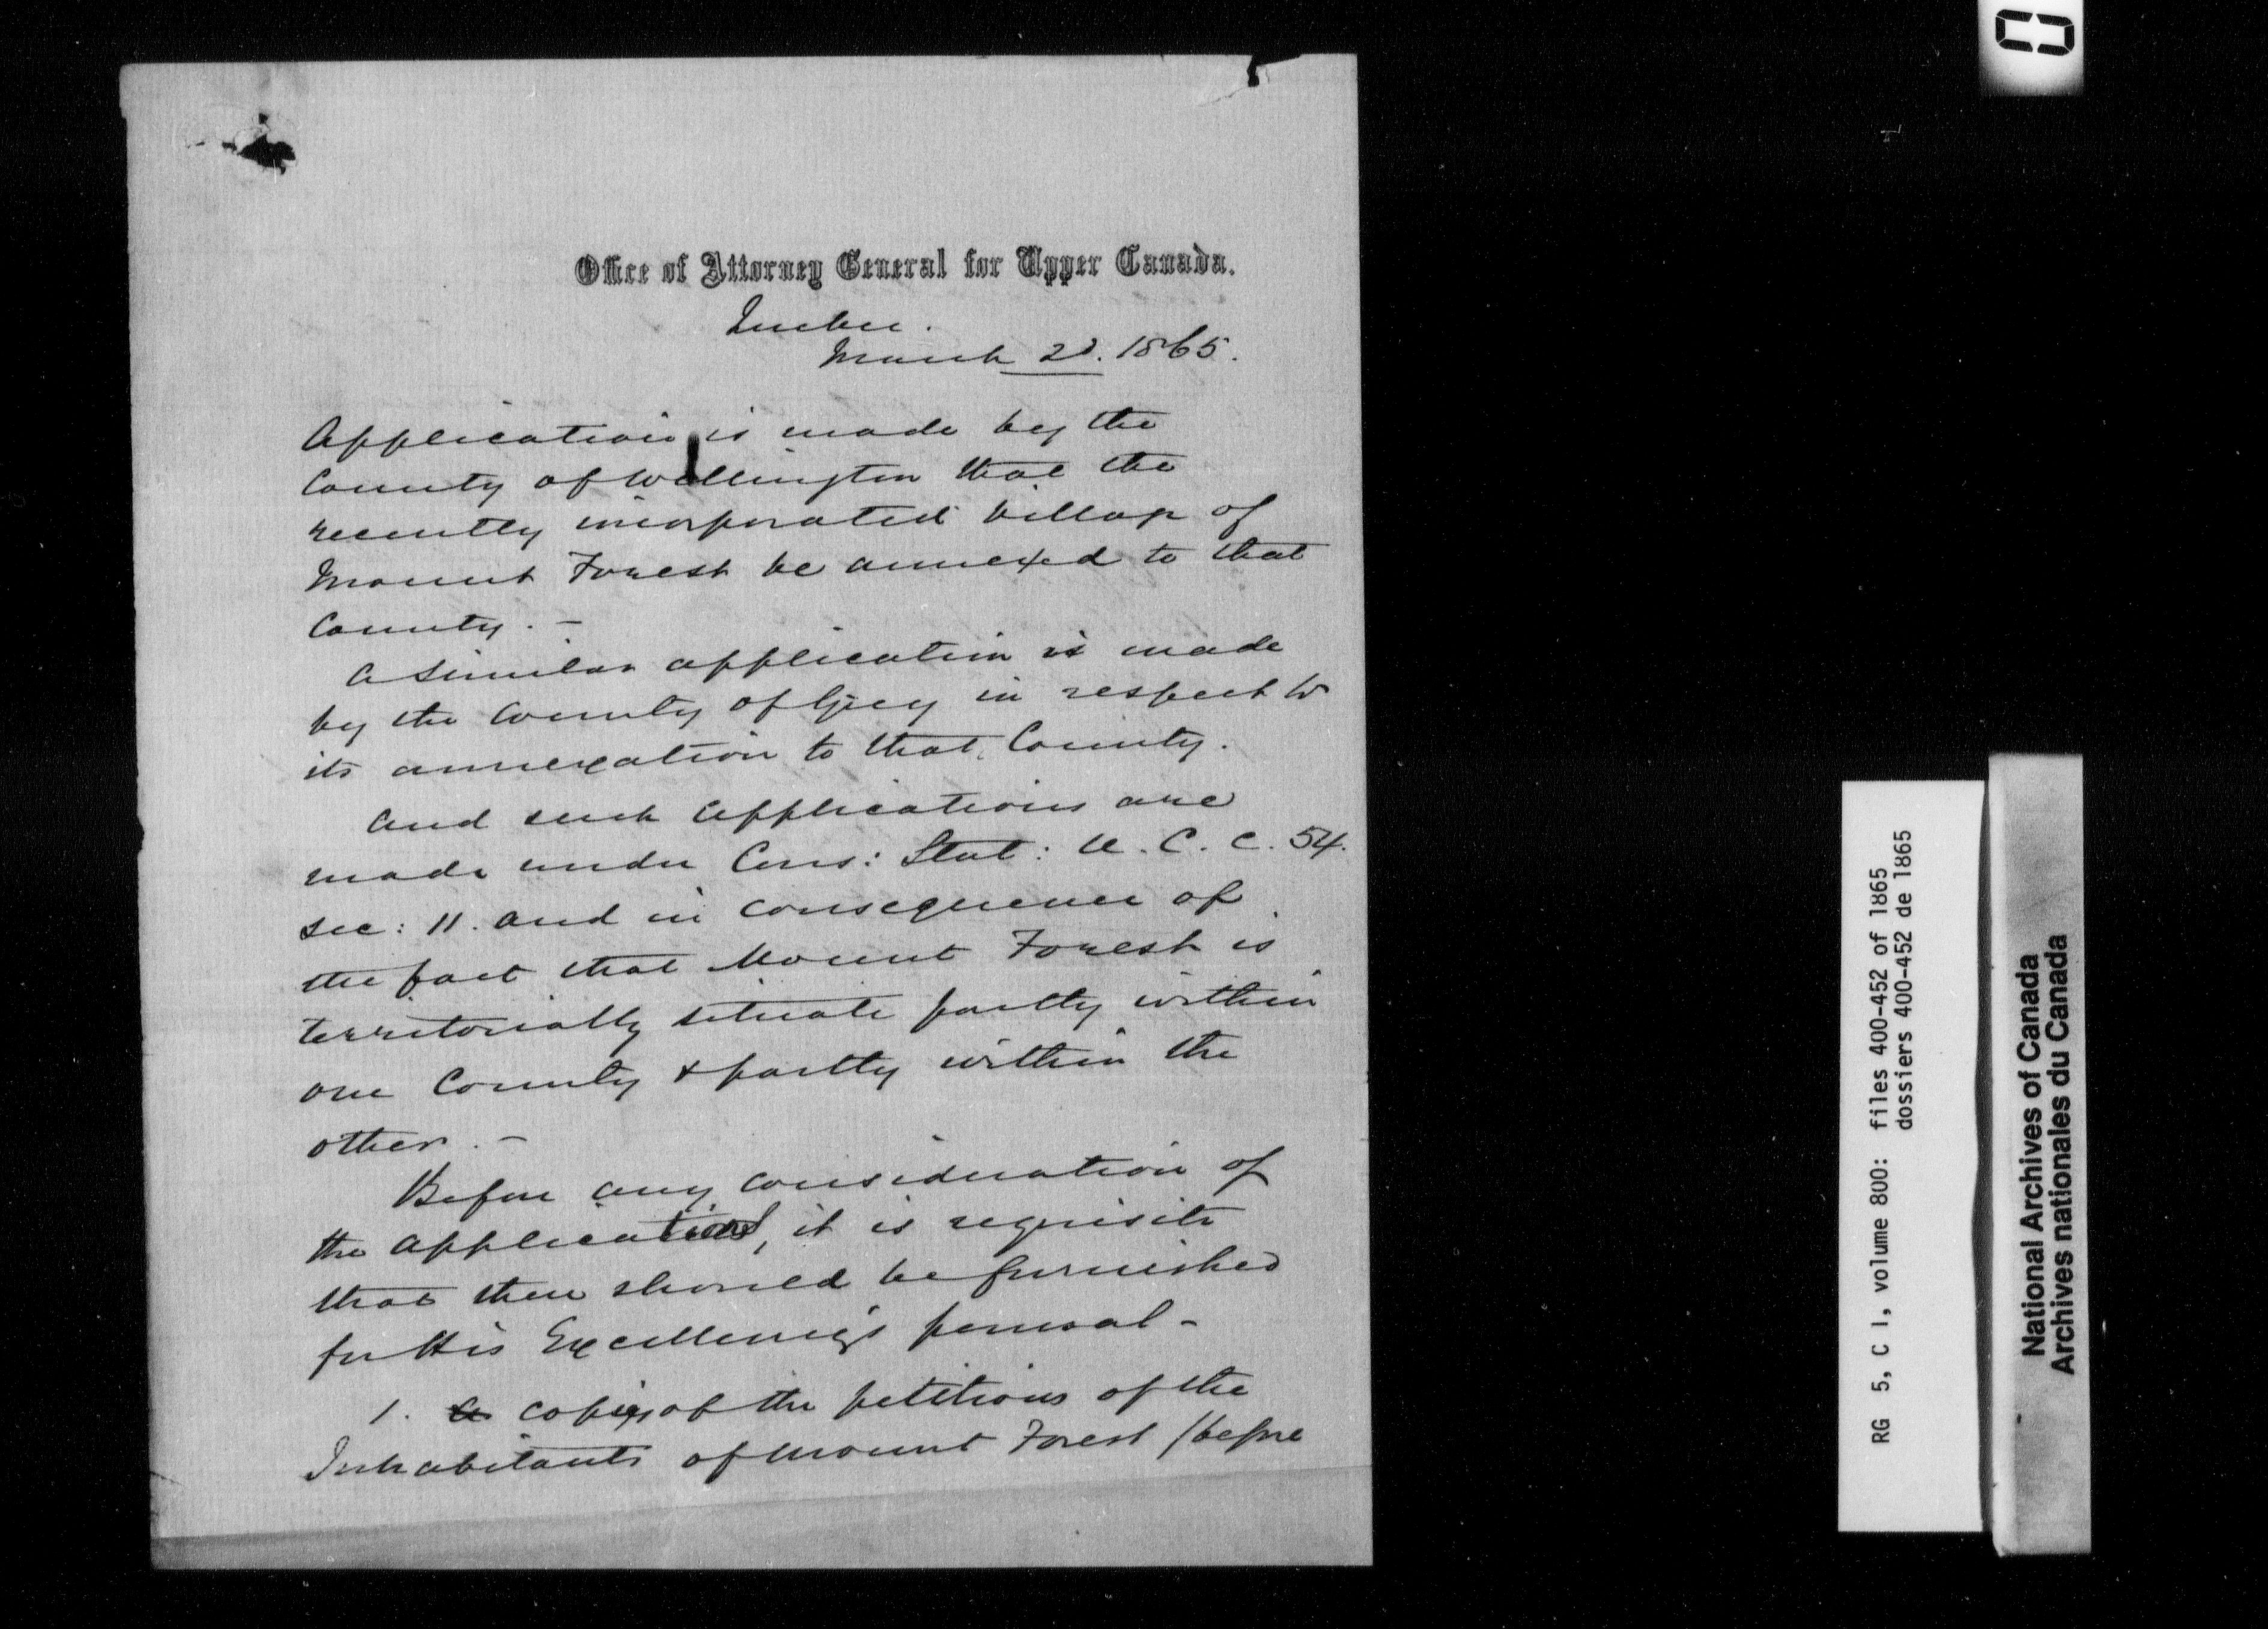 Office of Attorney General for Upper Canada.
Quebec.
March 2d. 1865.
Application is made by the
County of Wellington that the
recently incorporated village of
Mount Forest be annexed to that
County. -
A similar application is made
by the County of Grey in respect to
its annexation to that County.
And such applications are
made under Cons: Stat: U. C. c. 54.
sec: 11. and in consequence of
the fact that Mount Forest is
territorially situate partly within
one County & partly within the
other. -
Before any consideration of
the applications, it is requisite
that there should be furnished
for His Excellency's perusal -
1. a copies of the petitions of the
Inhabitants of Mount Forest (before
RG 5, C 1, volume 800: files 400-452 of 1865
dossiers 400-452 de 1865
National Archives of Canada
Archives nationales du Canada